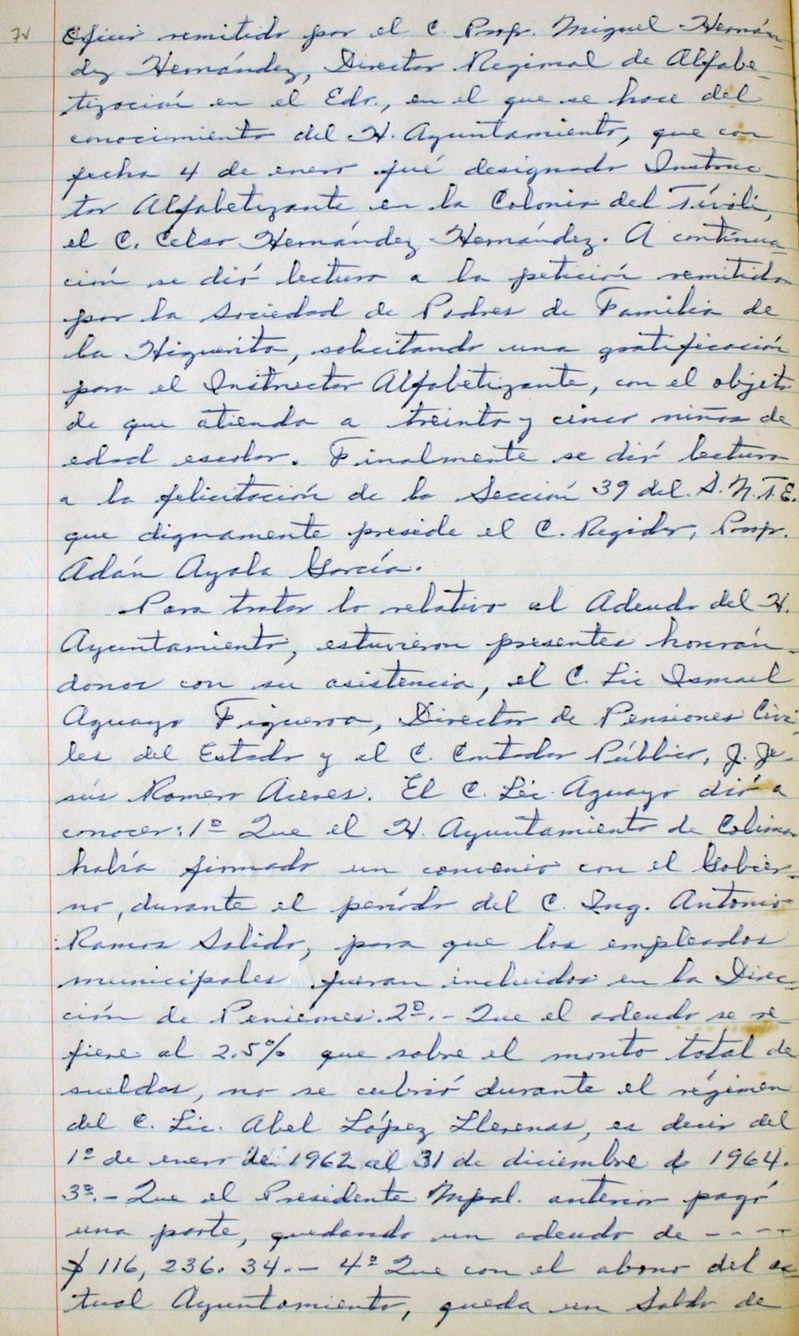 Oficio remitido por el C. Profr. Miguel Hernán-
dez Hernández, Director Regional de Alfabe-
tización en el Edo., en el que se hace del
conocimiento del H. Ayuntamiento, que con
fecha 4 de enero fué designado Instruc-
tor Alfabetizante en la Colonia del Tívoli,
el C. Celso Hernández Hernández. A continua-
ción se dió lectura a la petición remitida
por la Sociedad de Padres de Familia de
la Higuerita, solicitando una gratificación
para el Instructor Alfabetizante, con el objeto
de que atienda a treinta y cinco niños de
edad escolar. Finalmente se dió lectura
a la felicitación de la Sección 39 del S.N.T.E.
que dignamente preside el C. Regidor, Profr.
Adán Ayala García.
Para tratar lo relativo al Adeudo del H.
Ayuntamiento, estuvieron presentes honrán-
donos con su asistencia, el C. Lic Ismael
Aguayo Figueroa, Director de Pensiones Civi-
les del Estado y el C. Contador Público, J. Je-
sús Romero Aceves. El C. Lic. Aguayo dió a
conocer: 1º Que el H. Ayuntamiento de Colima
había firmado un convenio con el Gobier-
no, durante el período del C. Ing. Antonio
Ramos Salido, para que los empleados
municipales fueran incluidos en la Direc-
ción de Pensiones. 2º.- Que el adeudo se re-
fiere al 2.5% que sobre el monto total de
sueldos, no se cubrió durante el régimen
del C. Lic. Abel López Llerenas, es decir del
1º de enero de 1962 al 31 de diciembre de 1964.
3º.- Que el Presidente Mpal. anterior pagó
una parte, quedando un adeudo de - - - -
$ 116, 236. 34. - 4º Que con el abono del ac-
tual Ayuntamiento, queda un Saldo de